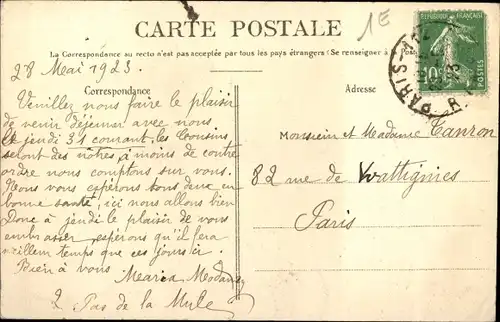 CARTE POSTALE
1E
La Correspondance au recto n'est pas acceptée par tous les pays étrangers (Se renseigner à la Poste)
28 Mai 1923
Correspondance
Adresse
RÉPUBLIQUE FRANÇAISE
10
POSTES
PARIS
Veuillez nous faire le plaisir
de venir déjeuner avec nous
le jeudi 31 courant, les Cousins
seront des nôtres, à moins de contre
ordre nous comptons sur vous.
Nous vous espérons tous deux en
bonne santé, ici nous allons bien
Donc à jeudi le plaisir de vous
embrasser, espérons qu'il fera
meilleur temps que ces jours ci
Bien à vous
Maria
2 Pas de la Mule
Monsieur et Madame Tanron
82 rue de Wattignies
Paris